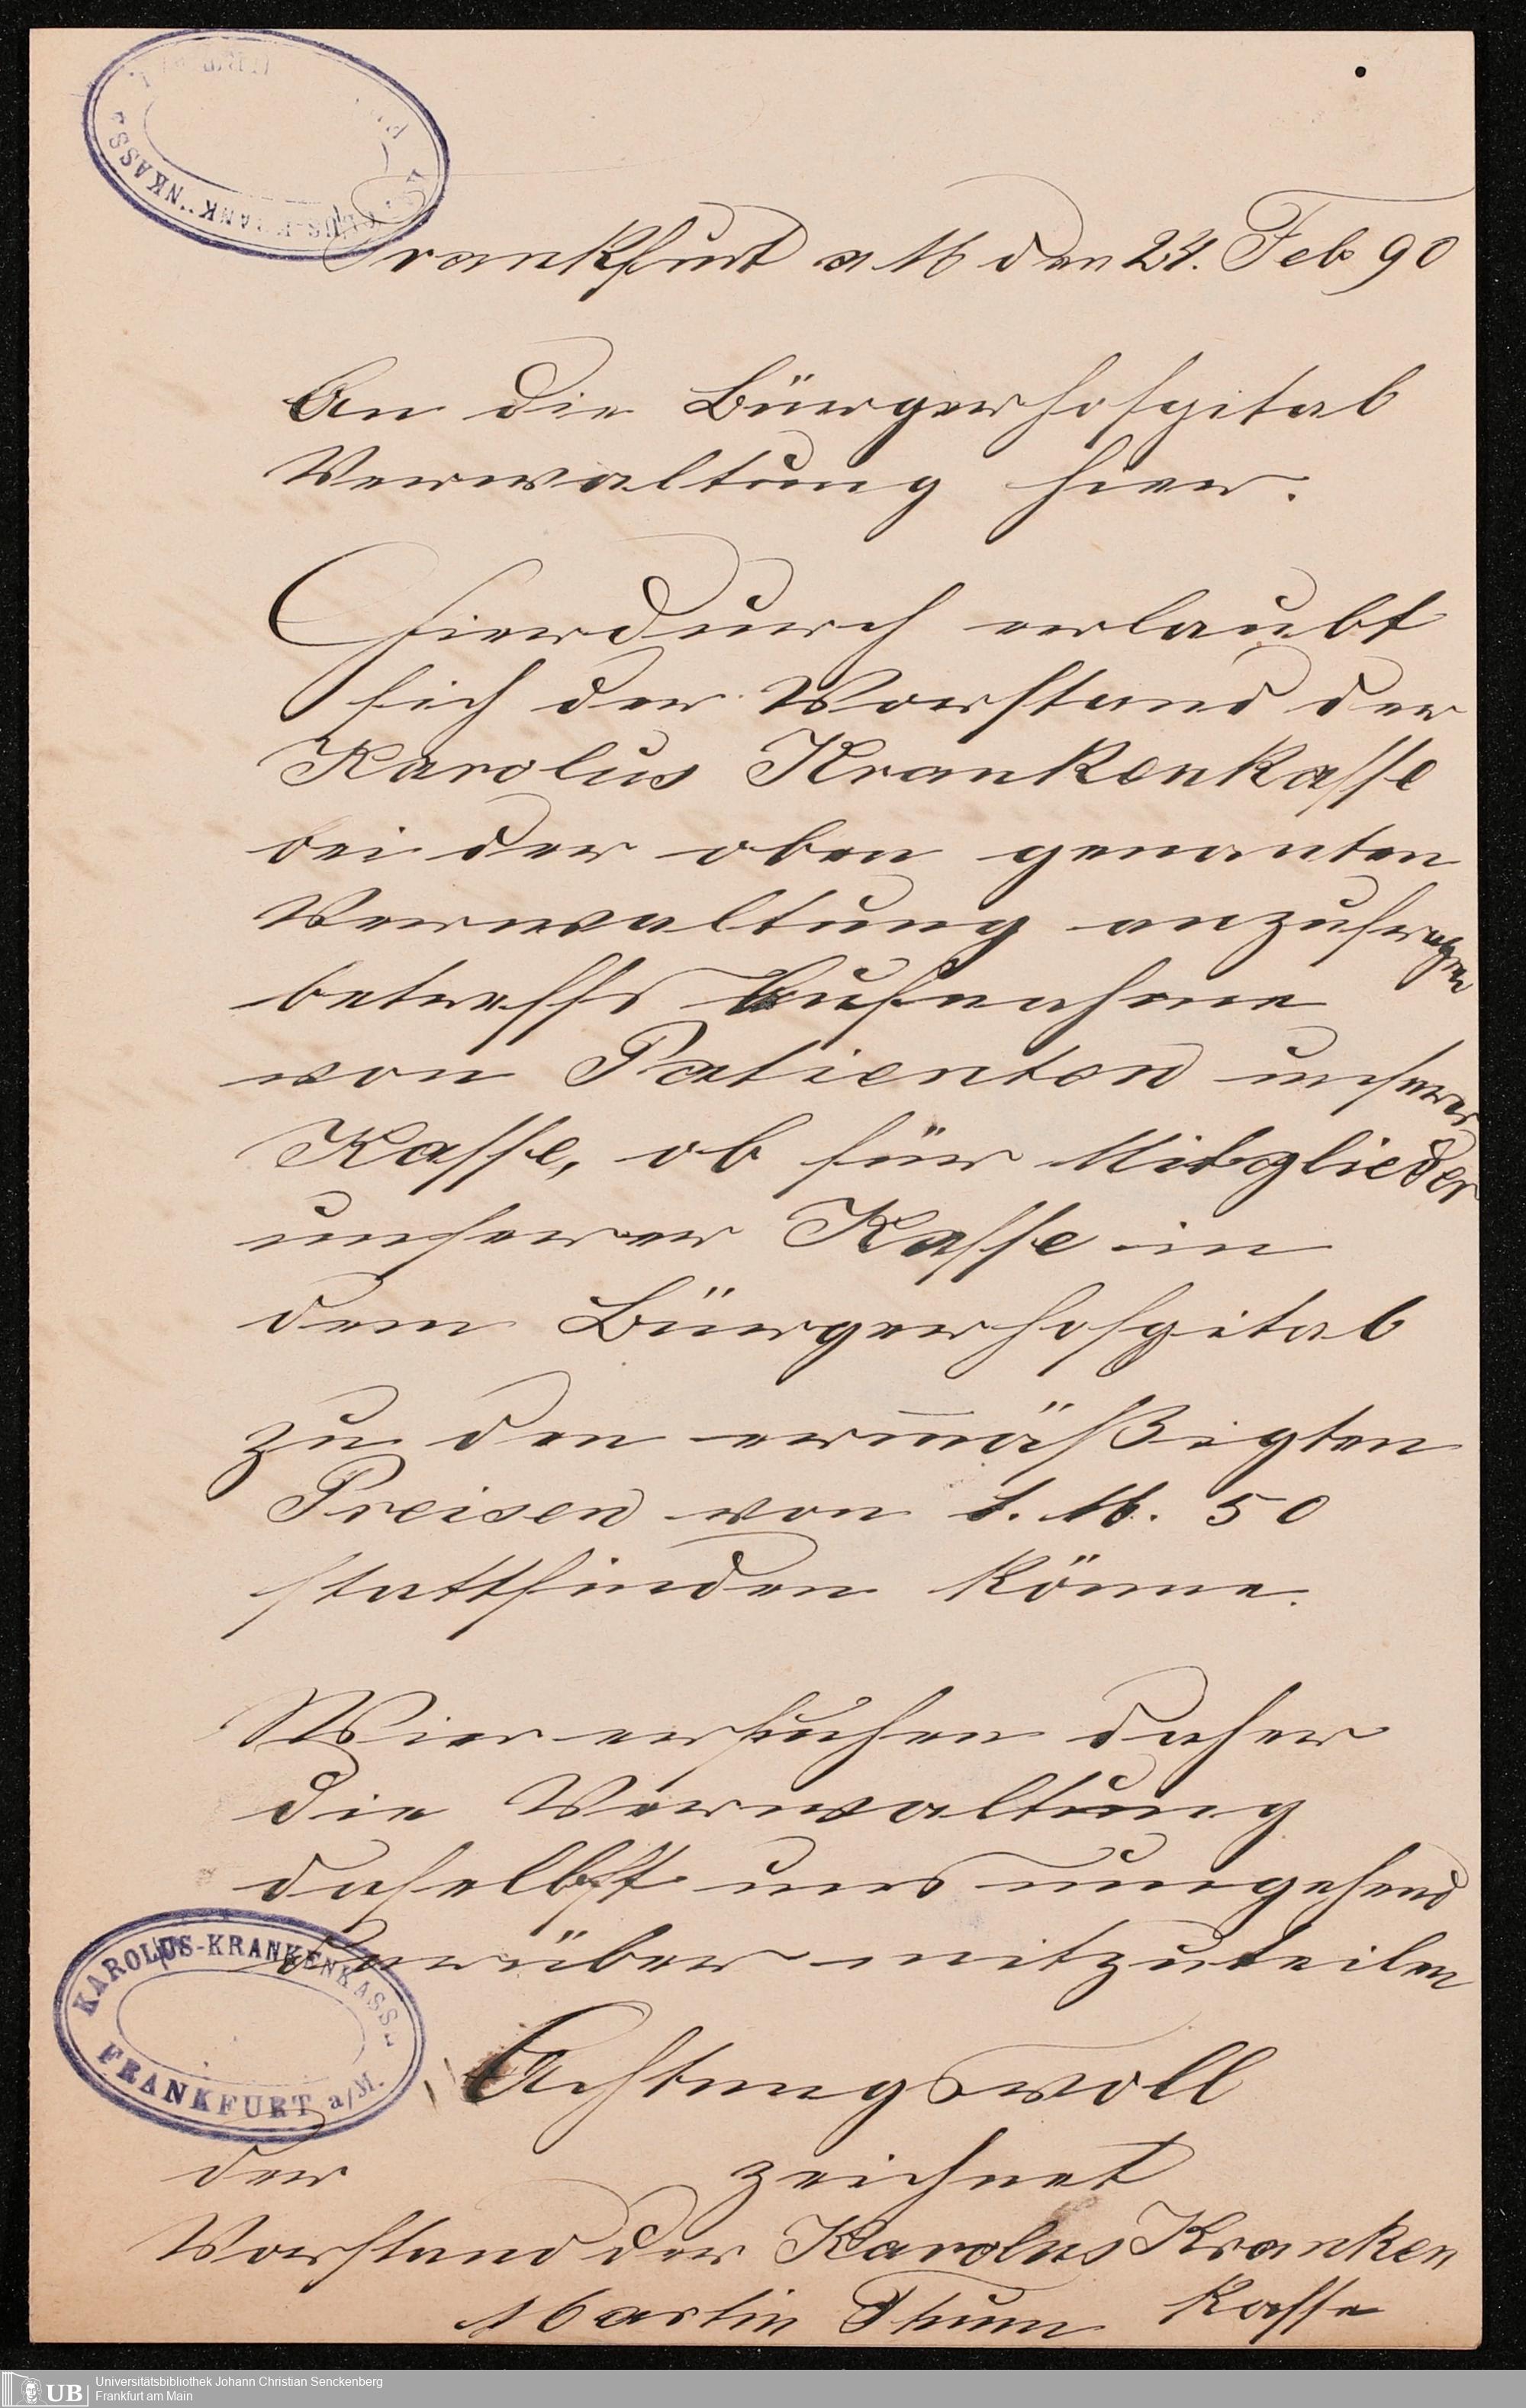 KAROLUS-KRANKENKASSE
Frankfurt a M den 24. Feb 90
An die Bürgerhospital
Verwaltung hier.
Hierdurch erlaubt
sich der Vorstand der
Karolus Krankenkasse
bei der oben genanten
Verwaltung anzufragen
betreffs Aufnahme
von Patienten unserer
Kasse, ob für Mitglieder
unserer Kasse in
dem Bürgerhospital
zu den ermäßigten
Preisen von 1. M. 50
stattfinden könne.
Wir ersuchen daher
die Verwaltung
daselbst uns umgehend
darüber mitzuteilen
KAROLUS-KRANKENKASSE
FRANKFURT a/M.
Achtungsvoll
der zeichnet
Vorstand der Karolus Kranken
Kasse
Martin Thum
UB
Universitätsbibliothek Johann Christian Senckenberg
Frankfurt am Main